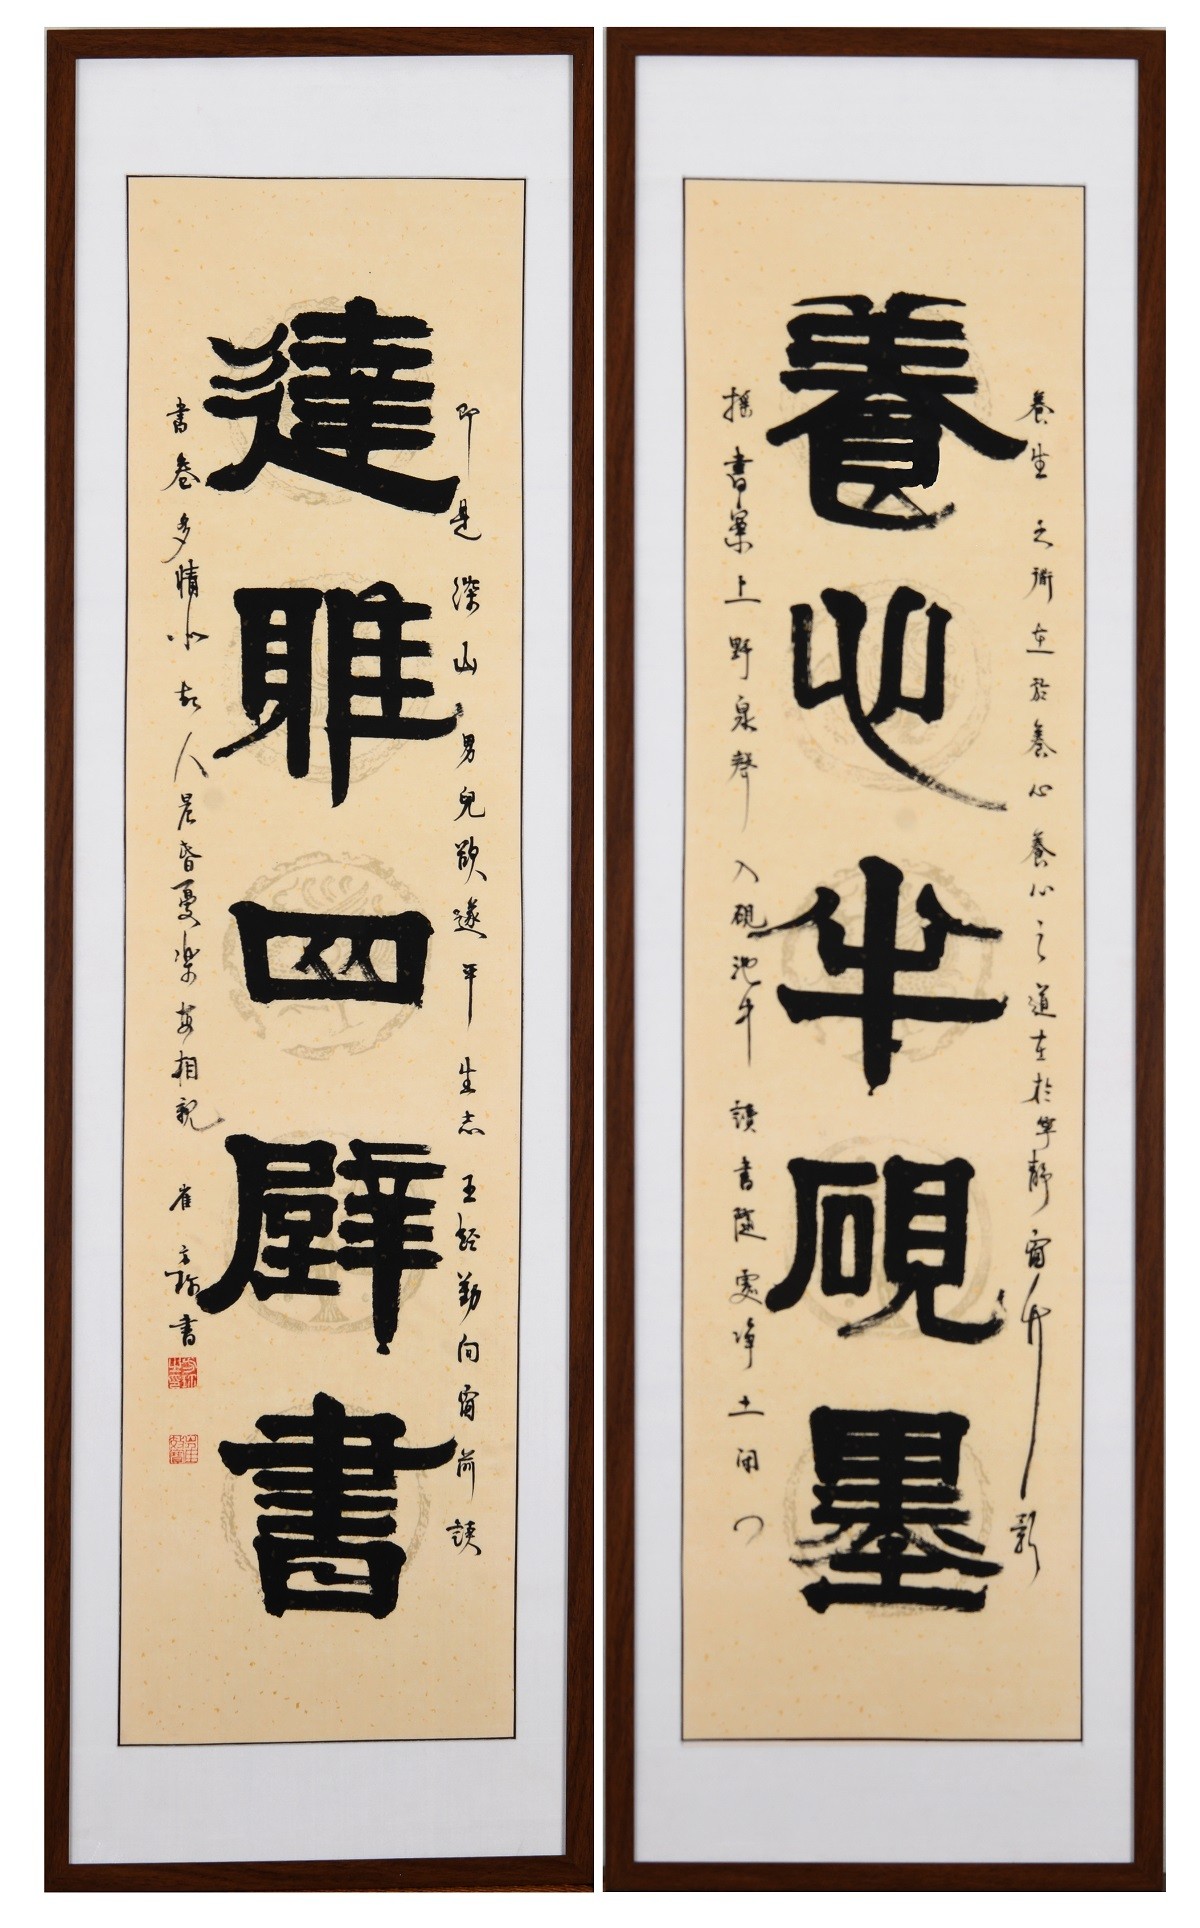 養生之術在於養心養心之道在於寧靜窗竹影
養心半硯墨
搖書案上野泉聲入硯池中讀書隨處淨土閉門
即是深山男兒欲遂平生志五經勤向窗前讀
達雅四壁書
書卷多情似故人晨昏憂樂每相親
崔書